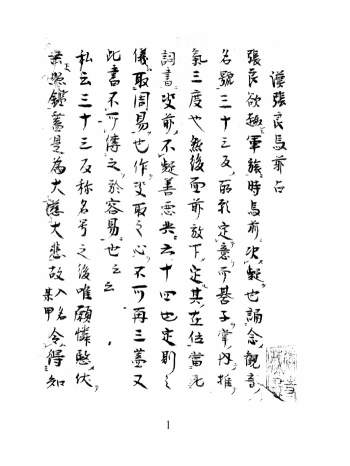 漢張良馬前占
張良欲趣軍旅時馬前決疑也誦念觀音
名號三十三反所祈定意可碁子掌内推
氣三度也然後面前放下定其左位當无
詞書安前不疑善悪共六十四也定則之
儀取周易也作安取之心不可再三蓋又
此書不可傳之於容易也云云
私云三十三反称名号之後唯願憐愍伏
乞照鑑蓋是為大慈大悲故入名某甲令得知
1